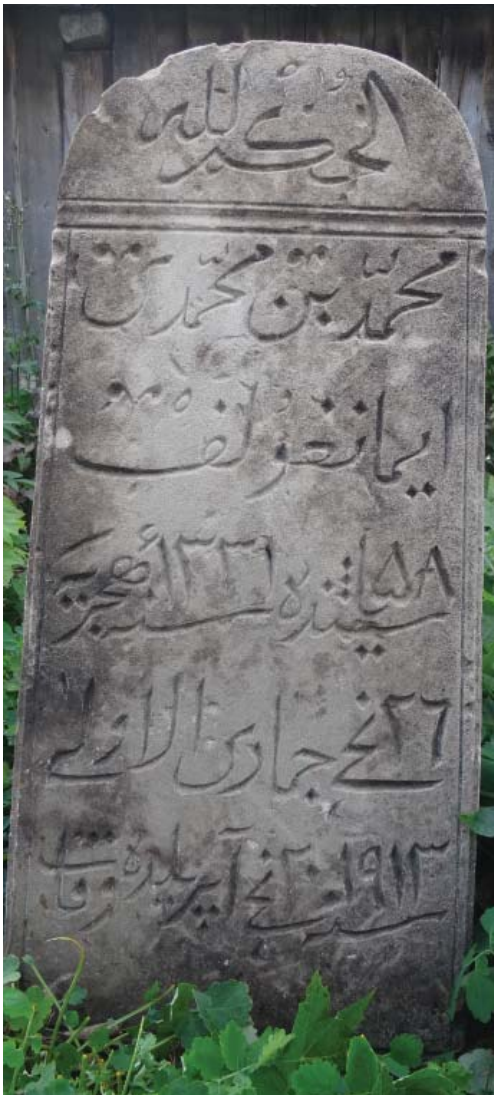 الحكم لله
محمّد بن
ايمانغولف
۵٨ ياشنده ١٣٣١ سنه هجريه
٢٦ نچى جمادى الاولى
١٩١٣ سنه ٢٠ نچى آپريلده وفات